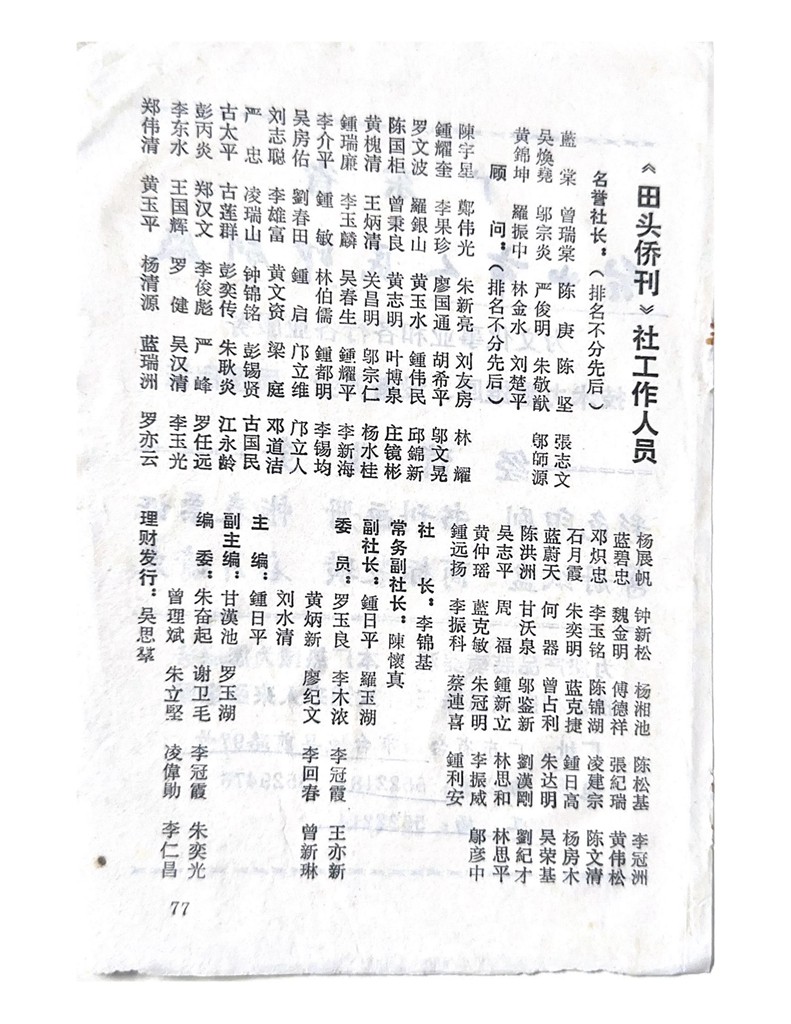 《田头侨刊》社工作人员
名誉社长：（排名不分先后）
蓝棠 曾瑞棠 陈庚 陈坚 張志文
吴焕堯 邬宗炎 严俊明 朱敬猷 鄔師源
黄錦坤 羅振中 林金水 刘楚平
顾问：（排名不分先后）
陳宇星 鄭伟光 朱新亮 刘友房 林耀
鍾耀奎 李果珍 廖国通 胡希平 邬文晃
罗文波 羅銀山 黄玉水 鍾伟民 邱錦新
陈国柜 曾秉良 黄志明 叶博泉 庄镜彬
黄槐清 王炳清 关昌明 邬宗仁 杨水桂
鍾瑞廉 李玉麟 吴春生 鍾耀平 李新海
李介平 鍾敏 林伯儒 鍾都明 李锡均
吴房佑 劉春田 鍾启 邝立维 邝立人
刘志聪 李雄富 黄文资 梁庭 邓道洁
严忠 凌瑞山 钟锦铭 彭锡贤 古国民
古太平 古莲群 彭奕传 朱耿炎 江永龄
彭丙炎 郑汉文 李俊彪 严峰 罗任远
李东水 王国辉 罗健 吴汉清 李玉光
郑伟清 黄玉平 杨清源 蓝瑞洲 罗亦云
杨展帆 钟新松 杨湘池 陈松基 李冠洲
蓝碧忠 魏金明 傅德祥 張紀瑞 黄伟松
邓炽忠 李玉铭 陈锦湖 凌建宗 陈文清
石月霞 朱奕明 蓝克捷 鍾日高 杨房木
蓝蔚天 何器 曾占利 朱达明 吴荣基
陈洪洲 甘沃泉 邬鉴新 劉漢剛 劉紀才
吴志平 周福 鍾新立 林思和 林思平
黄仲瑶 蓝克敏 朱冠明 李振威 鄔彦中
鍾远扬 李振科 蔡連喜 鍾利安
社长：李锦基
常务副社长：陳懷真
副社长：鍾日平 羅玉湖
委员：罗玉良 李木浓 李冠霞 王亦新
黄炳新 廖纪文 李回春 曾新琳
刘水清
主编：鍾日平
副主编：甘漢池 罗玉湖
编委：朱奋起 谢卫毛 李冠霞 朱奕光
曾理斌 朱立堅 凌偉勋 李仁昌
理财发行：吴思羣
77